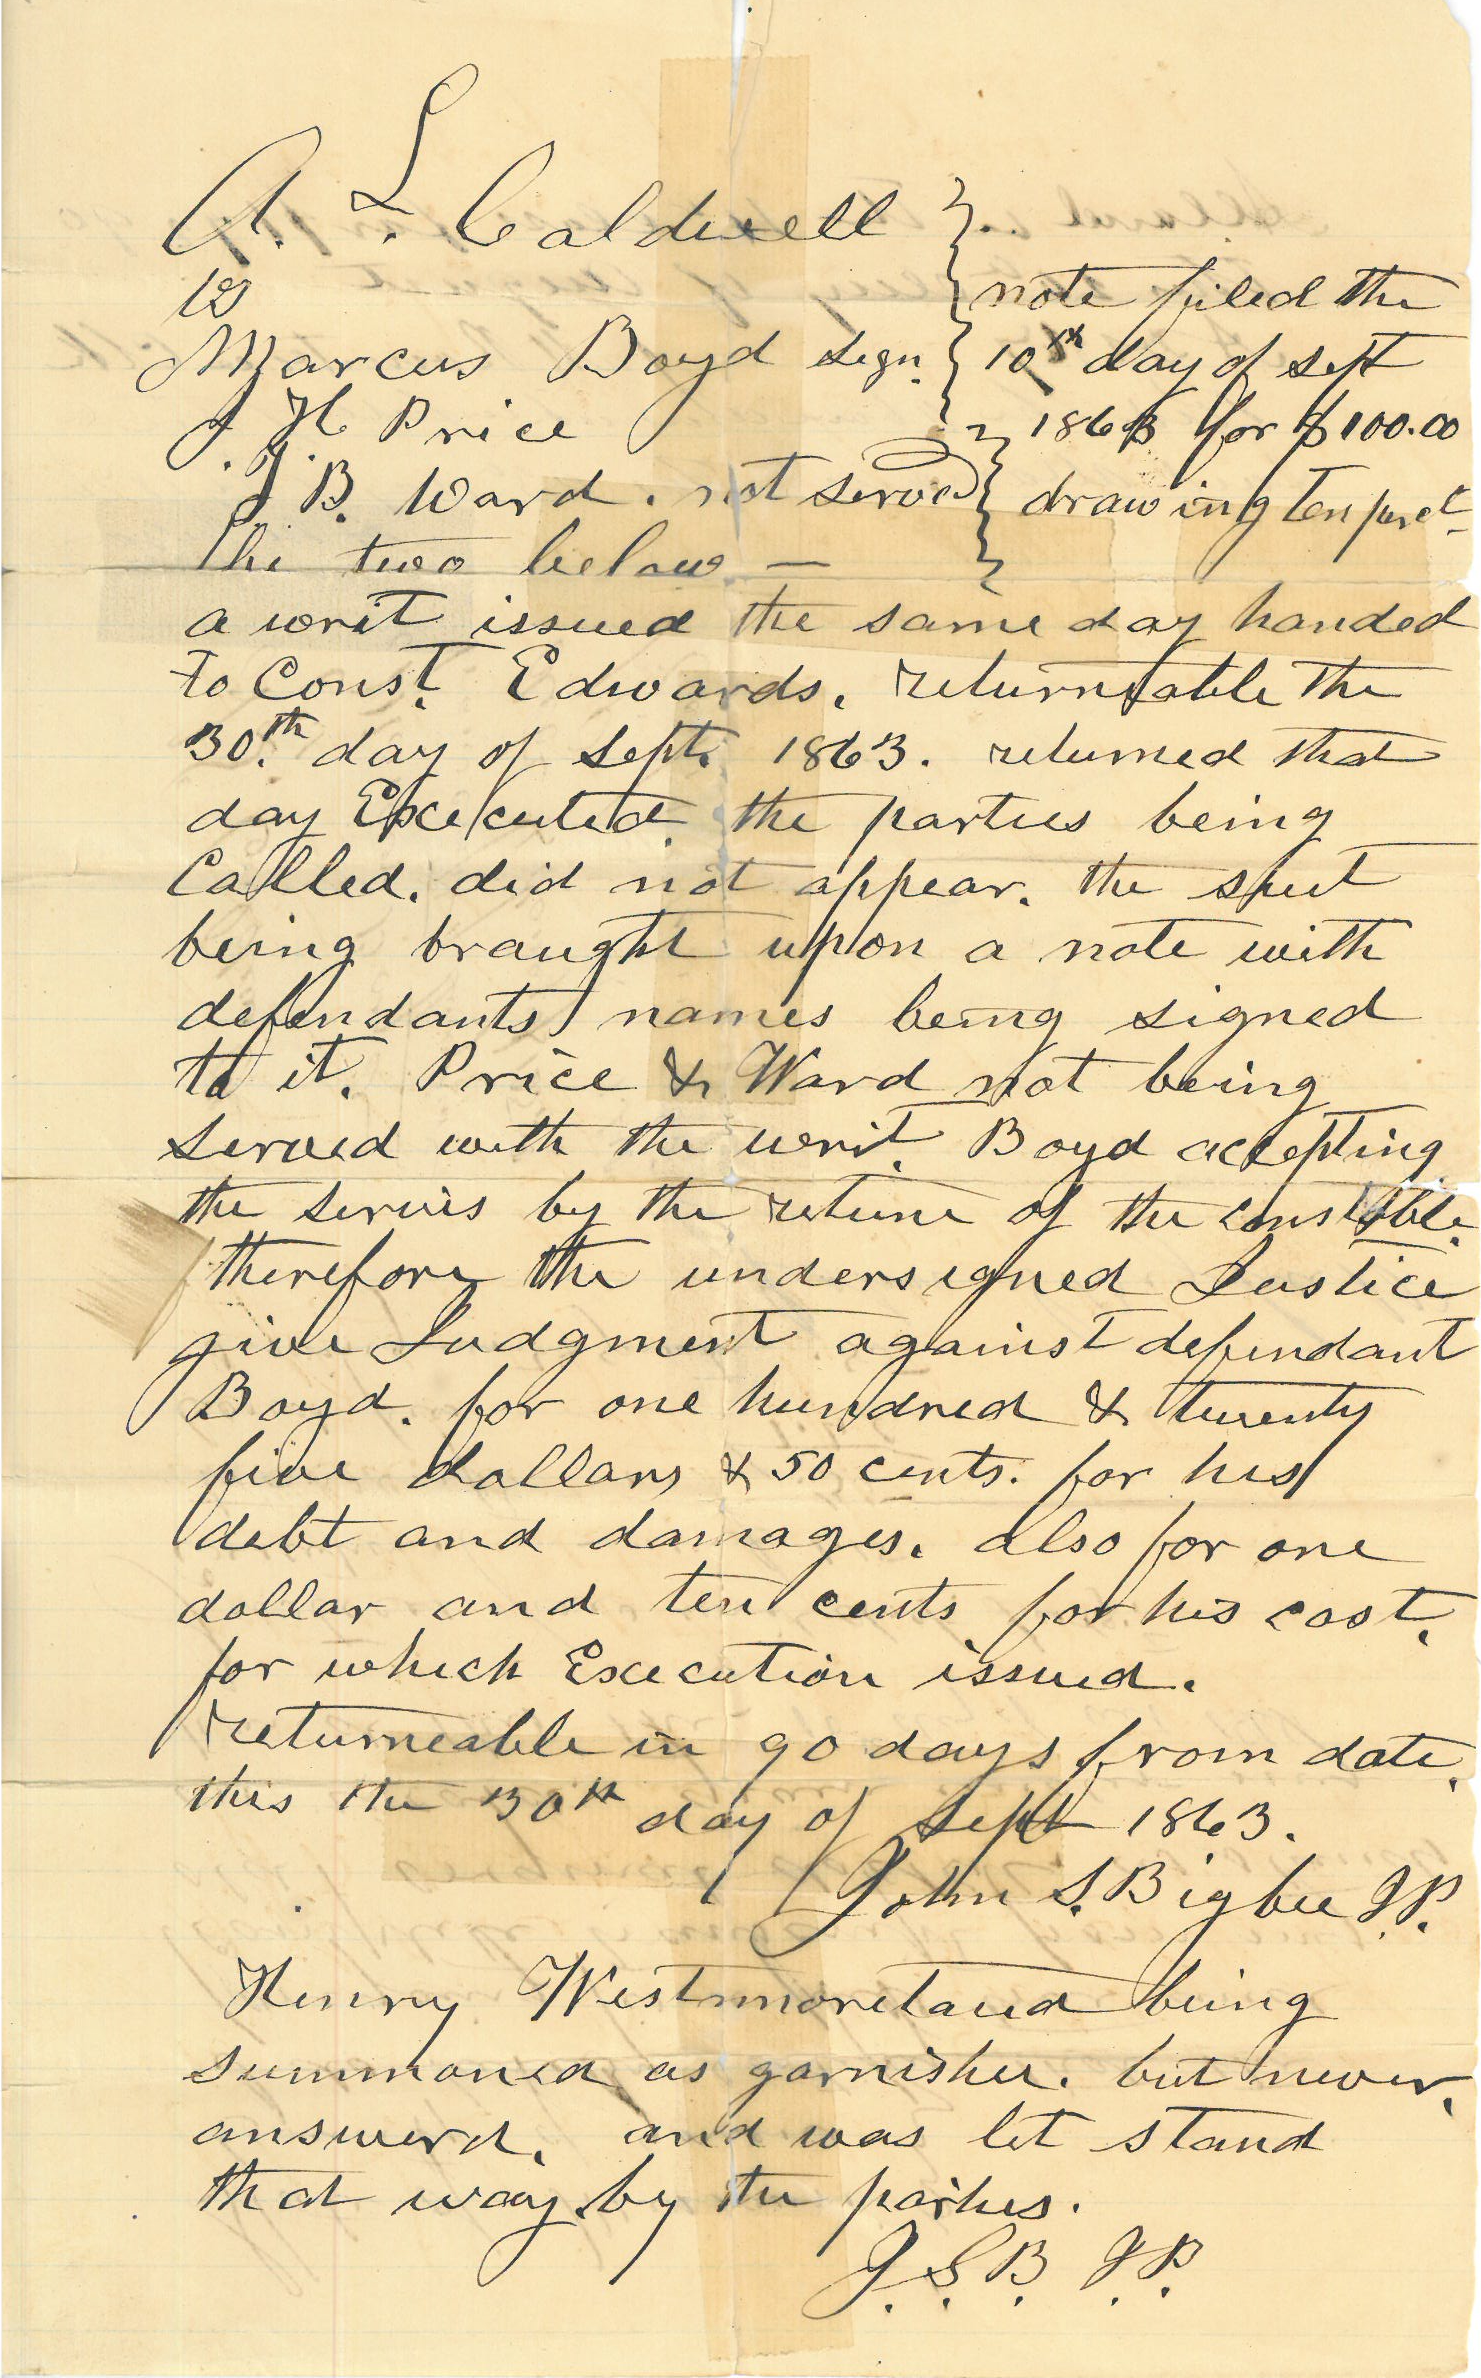 A. L. Caldwell
vs
Marcus Boyd sign.
J. H. Price
J. B. Ward. not served
The two below —
note filed the
10th day of sept
1863 for $100.00
drawing ten per ct
a writ issued the same day handed
to Const. Edwards. returneable the
30th day of Sept. 1863. returned that
day Executed. the parties being
Called. did not appear. the suit
being braught upon a note with
defendants names being signed
to it. Price & Ward not being
served with the writ. Boyd accepting
the servis by the returne of the constable.
therefore the undersigned Justice
give Judgment against defendant
Boyd. for one hundred & twenty
five dollars & 50 cents. for his
debt and damages. also for one
dollar and ten cents for his cost.
for which Execution issued.
returneable in 90 days from date.
this the 30th day of Sept 1863.
John S. Bigbee J.P.
Henry Westmoreland being
summoned as garnishee. but never.
answerd. and was let stand
that way by the parties.
J. S. B. J. P.